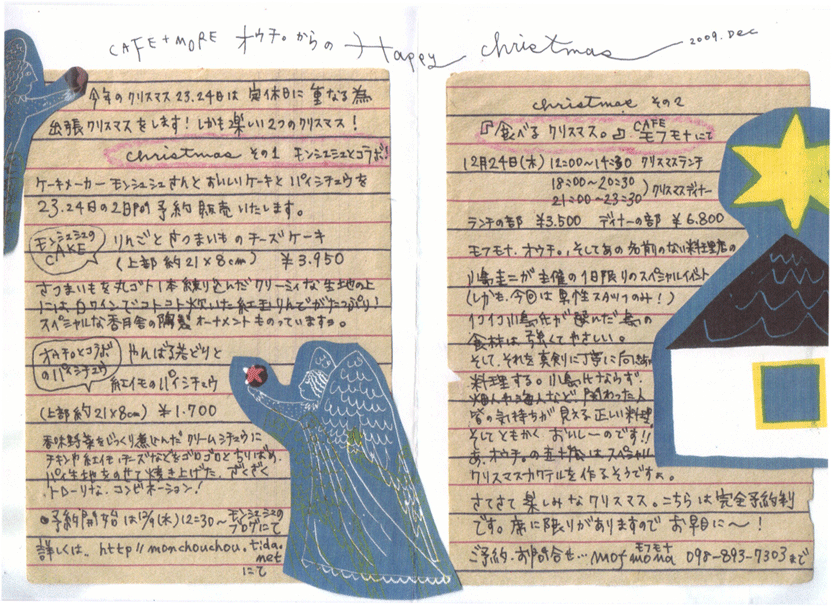 CAFE + MORE オウチ。からの Happy christmas 2009. Dec
今年のクリスマス 23.24日は 定休日に 重なる為
出張クリスマスをします! しかも楽しい2つのクリスマス!
christmas その1 モンシュシュとコラボ!
ケーキメーカー モンシュシュさんと おいしいケーキと パイシチュウを
23.24日の2日間 予約 販売いたします。
モンシュシュの CAKE
りんごと さつまいもの チーズケーキ
(上部 約21×8cm) ¥3.950
さつまいもを丸ゴト1本練り込んだクリーミィな生地の上
には白ワインでコトコト炊いた紅玉りんごがたっぷり!
スペシャルな香月舎の陶製オーナメントものっていますヨ。
オウチ。とコラボ のパイシチュウ
やんばる若どりと
紅イモのパイシチュウ
(上部 約21×8cm) ¥1.700
香味野菜をじっくり煮込んだ クリームシチュウに
チキンや紅イモ、チーズなどをゴロゴロとちりばめ、
パイ生地をのせて焼き上げた、ざくざく
トローリな、コンビネーション!
予約開始は12/9(木)12:30~ モンシュシュの ブログにて
詳しくは、http://monchouchou.tida.net にて
christmas その2
『食べる クリスマス。』 CAFE モフモナにて
12月24日(木) 12:00~14:30 クリスマスランチ
18:00~20:30
21:00~23:30
クリスマスディナー
ランチの部 ¥3.500 ディナーの部 ¥6.800
モフモナ、オウチ。、そしてあの 名前のない料理店の
川島圭二が主催の1日限りのスペシャルイベント
(しかも、今回は 男性スタッフのみ!)
イコイコ川島氏が選んだ島の
食材は 強くて やさしい。
そして、それを 真剣に丁寧に向き
料理する。川島氏ならず、
畑人や海人など 関わった人
皆の気持ちが見える正しい料理
そして ともかく おいしーのです!!
あ、オウチ。の は スペシャル
クリスマスカクテルを 作るそうですよ。
さてさて 楽しみな クリスマス。こちらは 完全予約制
です。席に限りがありますので お早目に~!
ご予約・お問合せ… mofmona モフモナ 098-893-7303まで